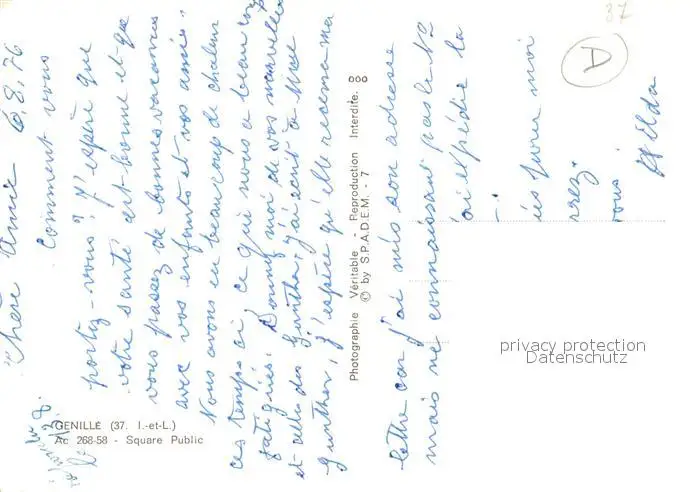 Chère Amie 6.8.76
Comment vous
portez-vous? J'espère que
votre santé est bonne et que
vous passez de bonnes vacances
avec vos enfants et vos amis.
Nous avons eu beaucoup de chaleur
ces temps ci, ce qui nous a beaucoup
fatigués. Donnez moi de vos nouvelles
et celles des Gunther, j'ai écrit à Mme
Gunther, j'espère qu'elle recevra ma
lettre car j'ai mis son adresse
mais ne connaissant pas le No
j'ai expédié la
moi
vous
Hilda
37
A
GENILLE (37. I.-et-L.)
Ac 268-58 - Square Public
Photographie Véritable - Reproduction Interdite.
© by S.P.A.D.E.M. - 7
privacy protection
Datenschutz